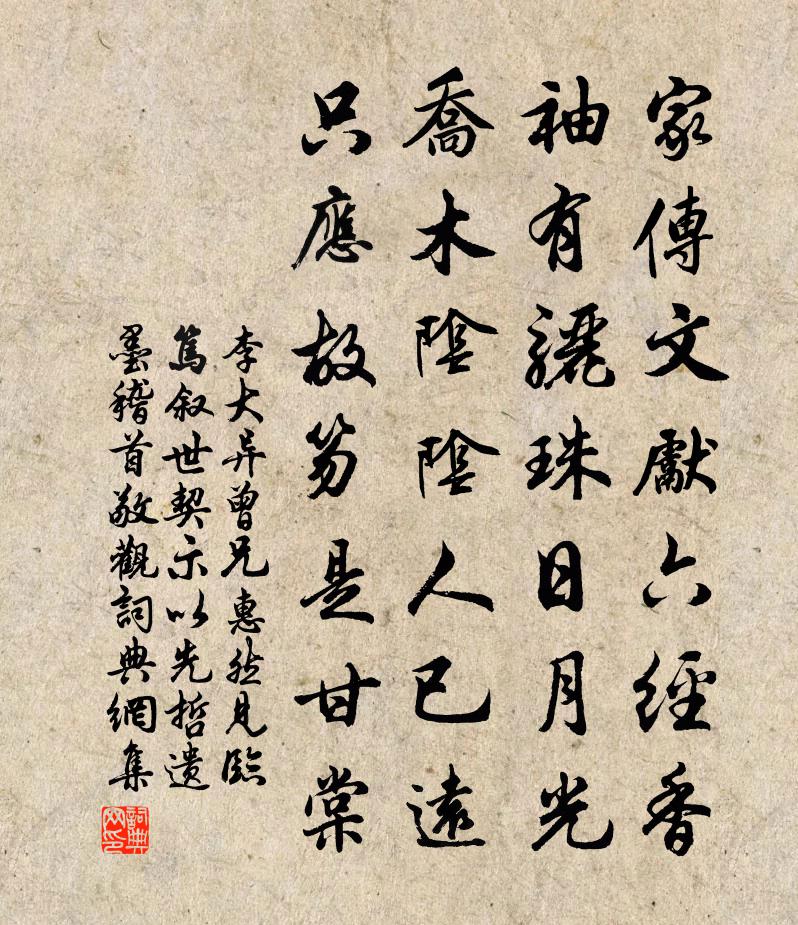 家傳文獻六經香
袖有驪珠日月光
喬木陰陰人已遠
只應故笏是甘棠
李大异曾兄惠然見臨
篤叙世契示以先哲遺
墨稽首敬觀詞典網集
詞典
网印